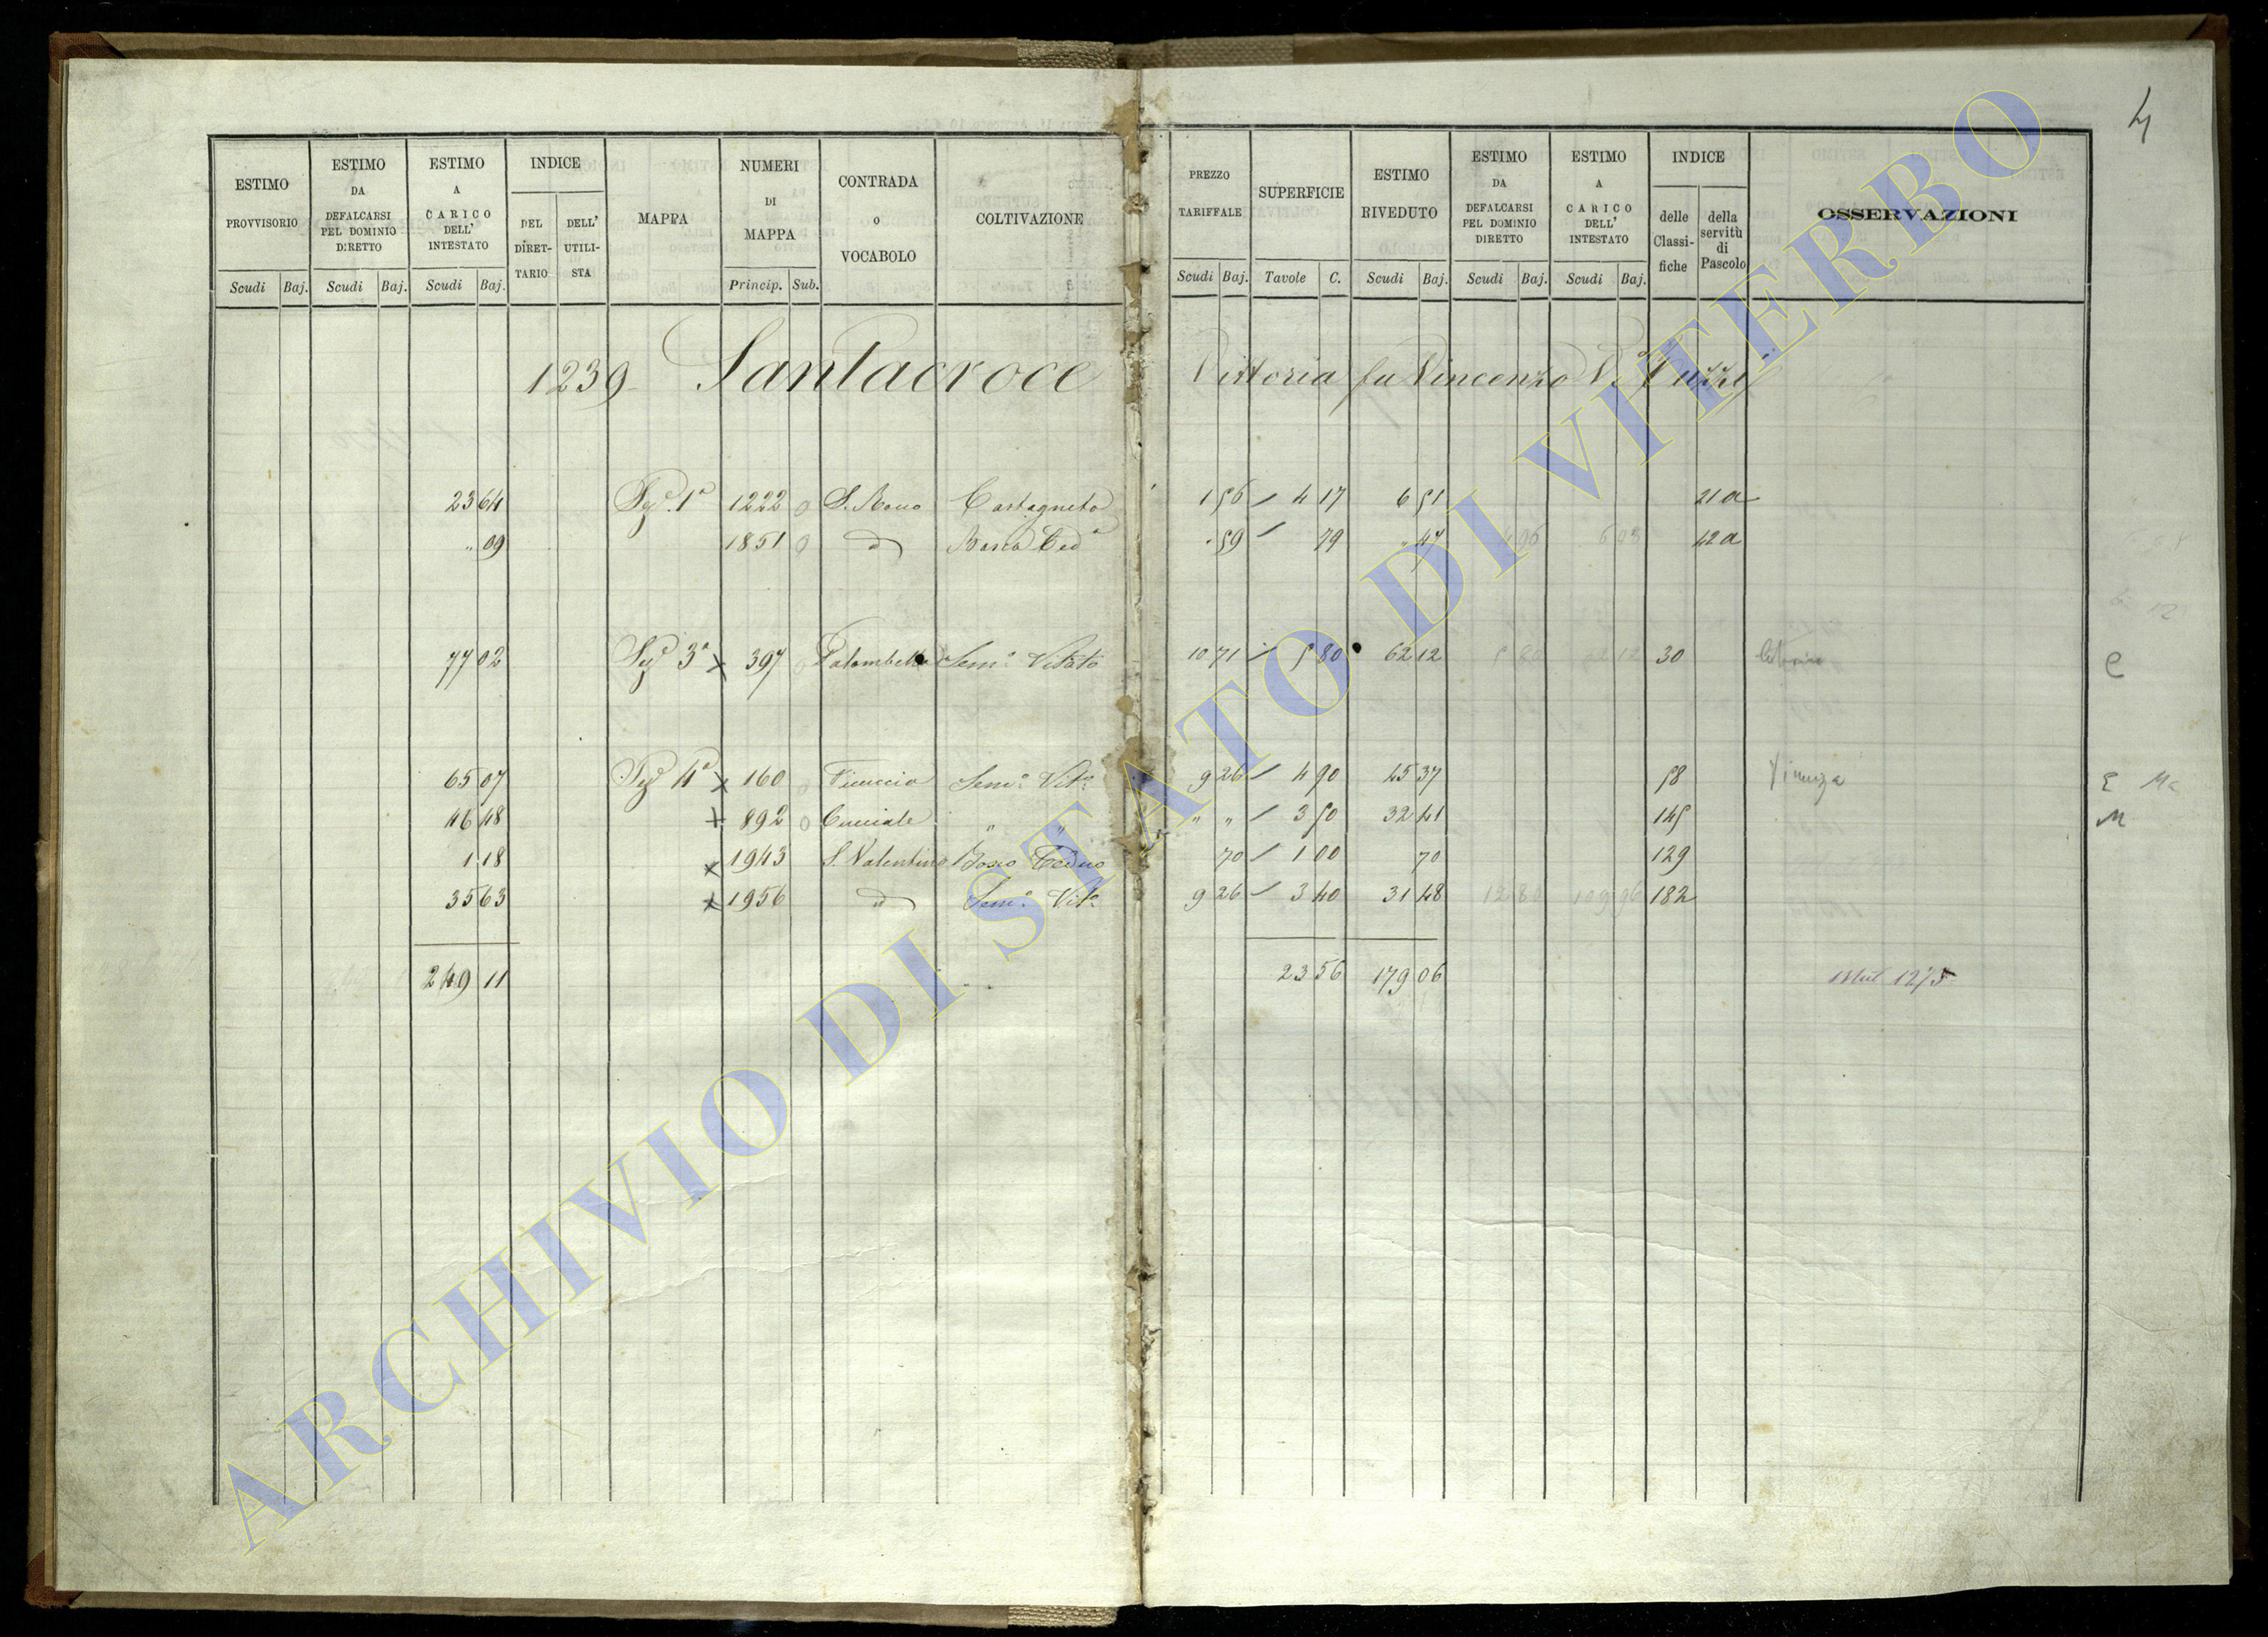 4
ESTIMO PROVVISORIO
ESTIMO DA DEFALCARSI PEL DOMINIO DIRETTO
ESTIMO A CARICO DELL' INTESTATO
INDICE
DEL DIRETTARIO
DELL' UTILISTA
MAPPA
NUMERI DI MAPPA
CONTRADA o VOCABOLO
COLTIVAZIONE
PREZZO TARIFFALE
SUPERFICIE
ESTIMO RIVEDUTO
ESTIMO DA DEFALCARSI PEL DOMINIO DIRETTO
ESTIMO A CARICO DELL' INTESTATO
INDICE
delle Classifiche
della servitù di Pascolo
OSSERVAZIONI
Scudi Baj. Scudi Baj. Scudi Baj. Princip. Sub. Scudi Baj. Tavole C. Scudi Baj. Scudi Baj. Scudi Baj.
1239 Santacroce Vittoria fu Vincenzo
23 64 1222 0 S. Rocco Castagneto 1 56 4 17 6 51 21a
" 09 1851 0 Ced.a " 59 79 " 47 4 96 6 98 12a
77 02 3a 397 0 Palombella Sem.o Vitato 10 71 5 80 62 12 5 80 62 12 30 C
65 07 4a 160 0 Sem.o Vit.o 9 26 4 90 45 37 58
46 48 892 0 " " " " 3 50 32 41 145 M
1 18 1943 S. Valentino Bosco Ceduo 70 1 00 70 129
35 63 1956 Sem.o Vit.o 9 26 3 40 31 48 12 80 109 96 182
249 11 23 56 179 06
ARCHIVIO DI STATO DI VITERBO